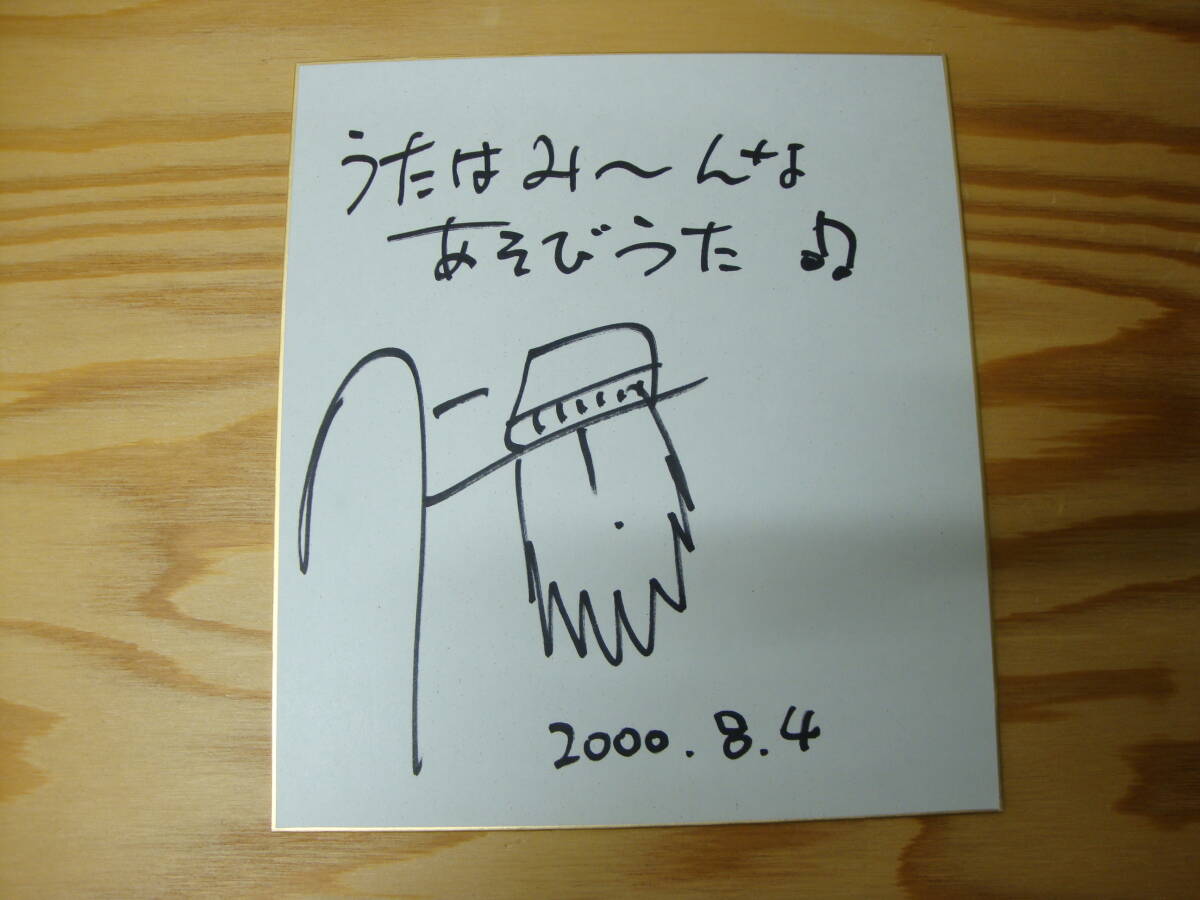 うたはみ〜んな
あそびうた ♫
2000.8.4